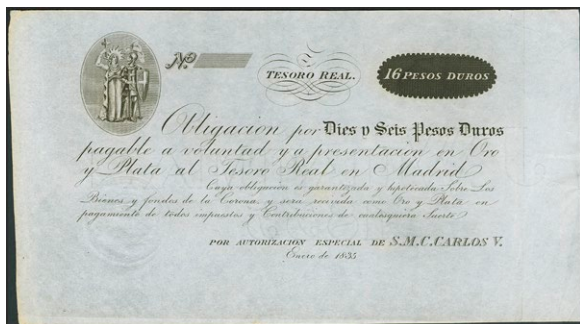 Nº
TESORO REAL.
16 PESOS DUROS
Obligacion por Dies y Seis Pesos Duros
pagable a voluntad y a presentacion en Oro
y Plata al Tesoro Real en Madrid
Cuya obligacion es garantizada y hipoticada Sobre Los
Bienes y fondos de la Corona, y sera recivida como Oro y Plata en
pagamiento de todos impuestos y Contribuciones de cualesquiera Suerte
POR AUTORIZACION ESPECIAL DE S.M.C. CARLOS V.
Enero de 1835